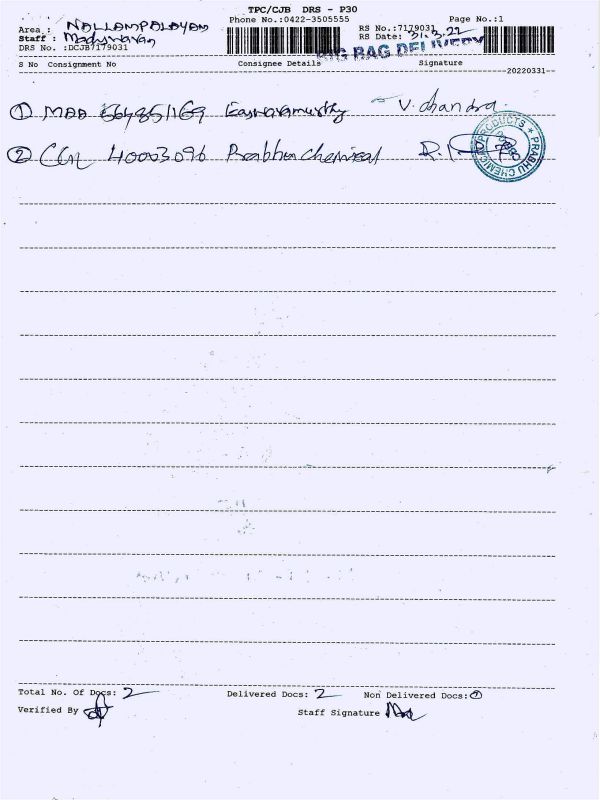 TPC/CJB DRS - P30
Phone No.:0422-3505555 Page No.:1
Area : NALLAMPALAYAM
RS No.:7179031
Staff :
RS Date: 31.3.22
DRS No. :DCJB7179031
BIG BAG DELIVERY
S No Consignment No Consignee Details Signature
20220331
① MAA 664851169 Easwaramurthy V. chandra.
② CGL 40003096 Prabhu Chemical
PRABHU CHEMICAL PRODUCTS
Total No. Of Docs: 2 Delivered Docs: 2 Non Delivered Docs:
Verified By Staff Signature